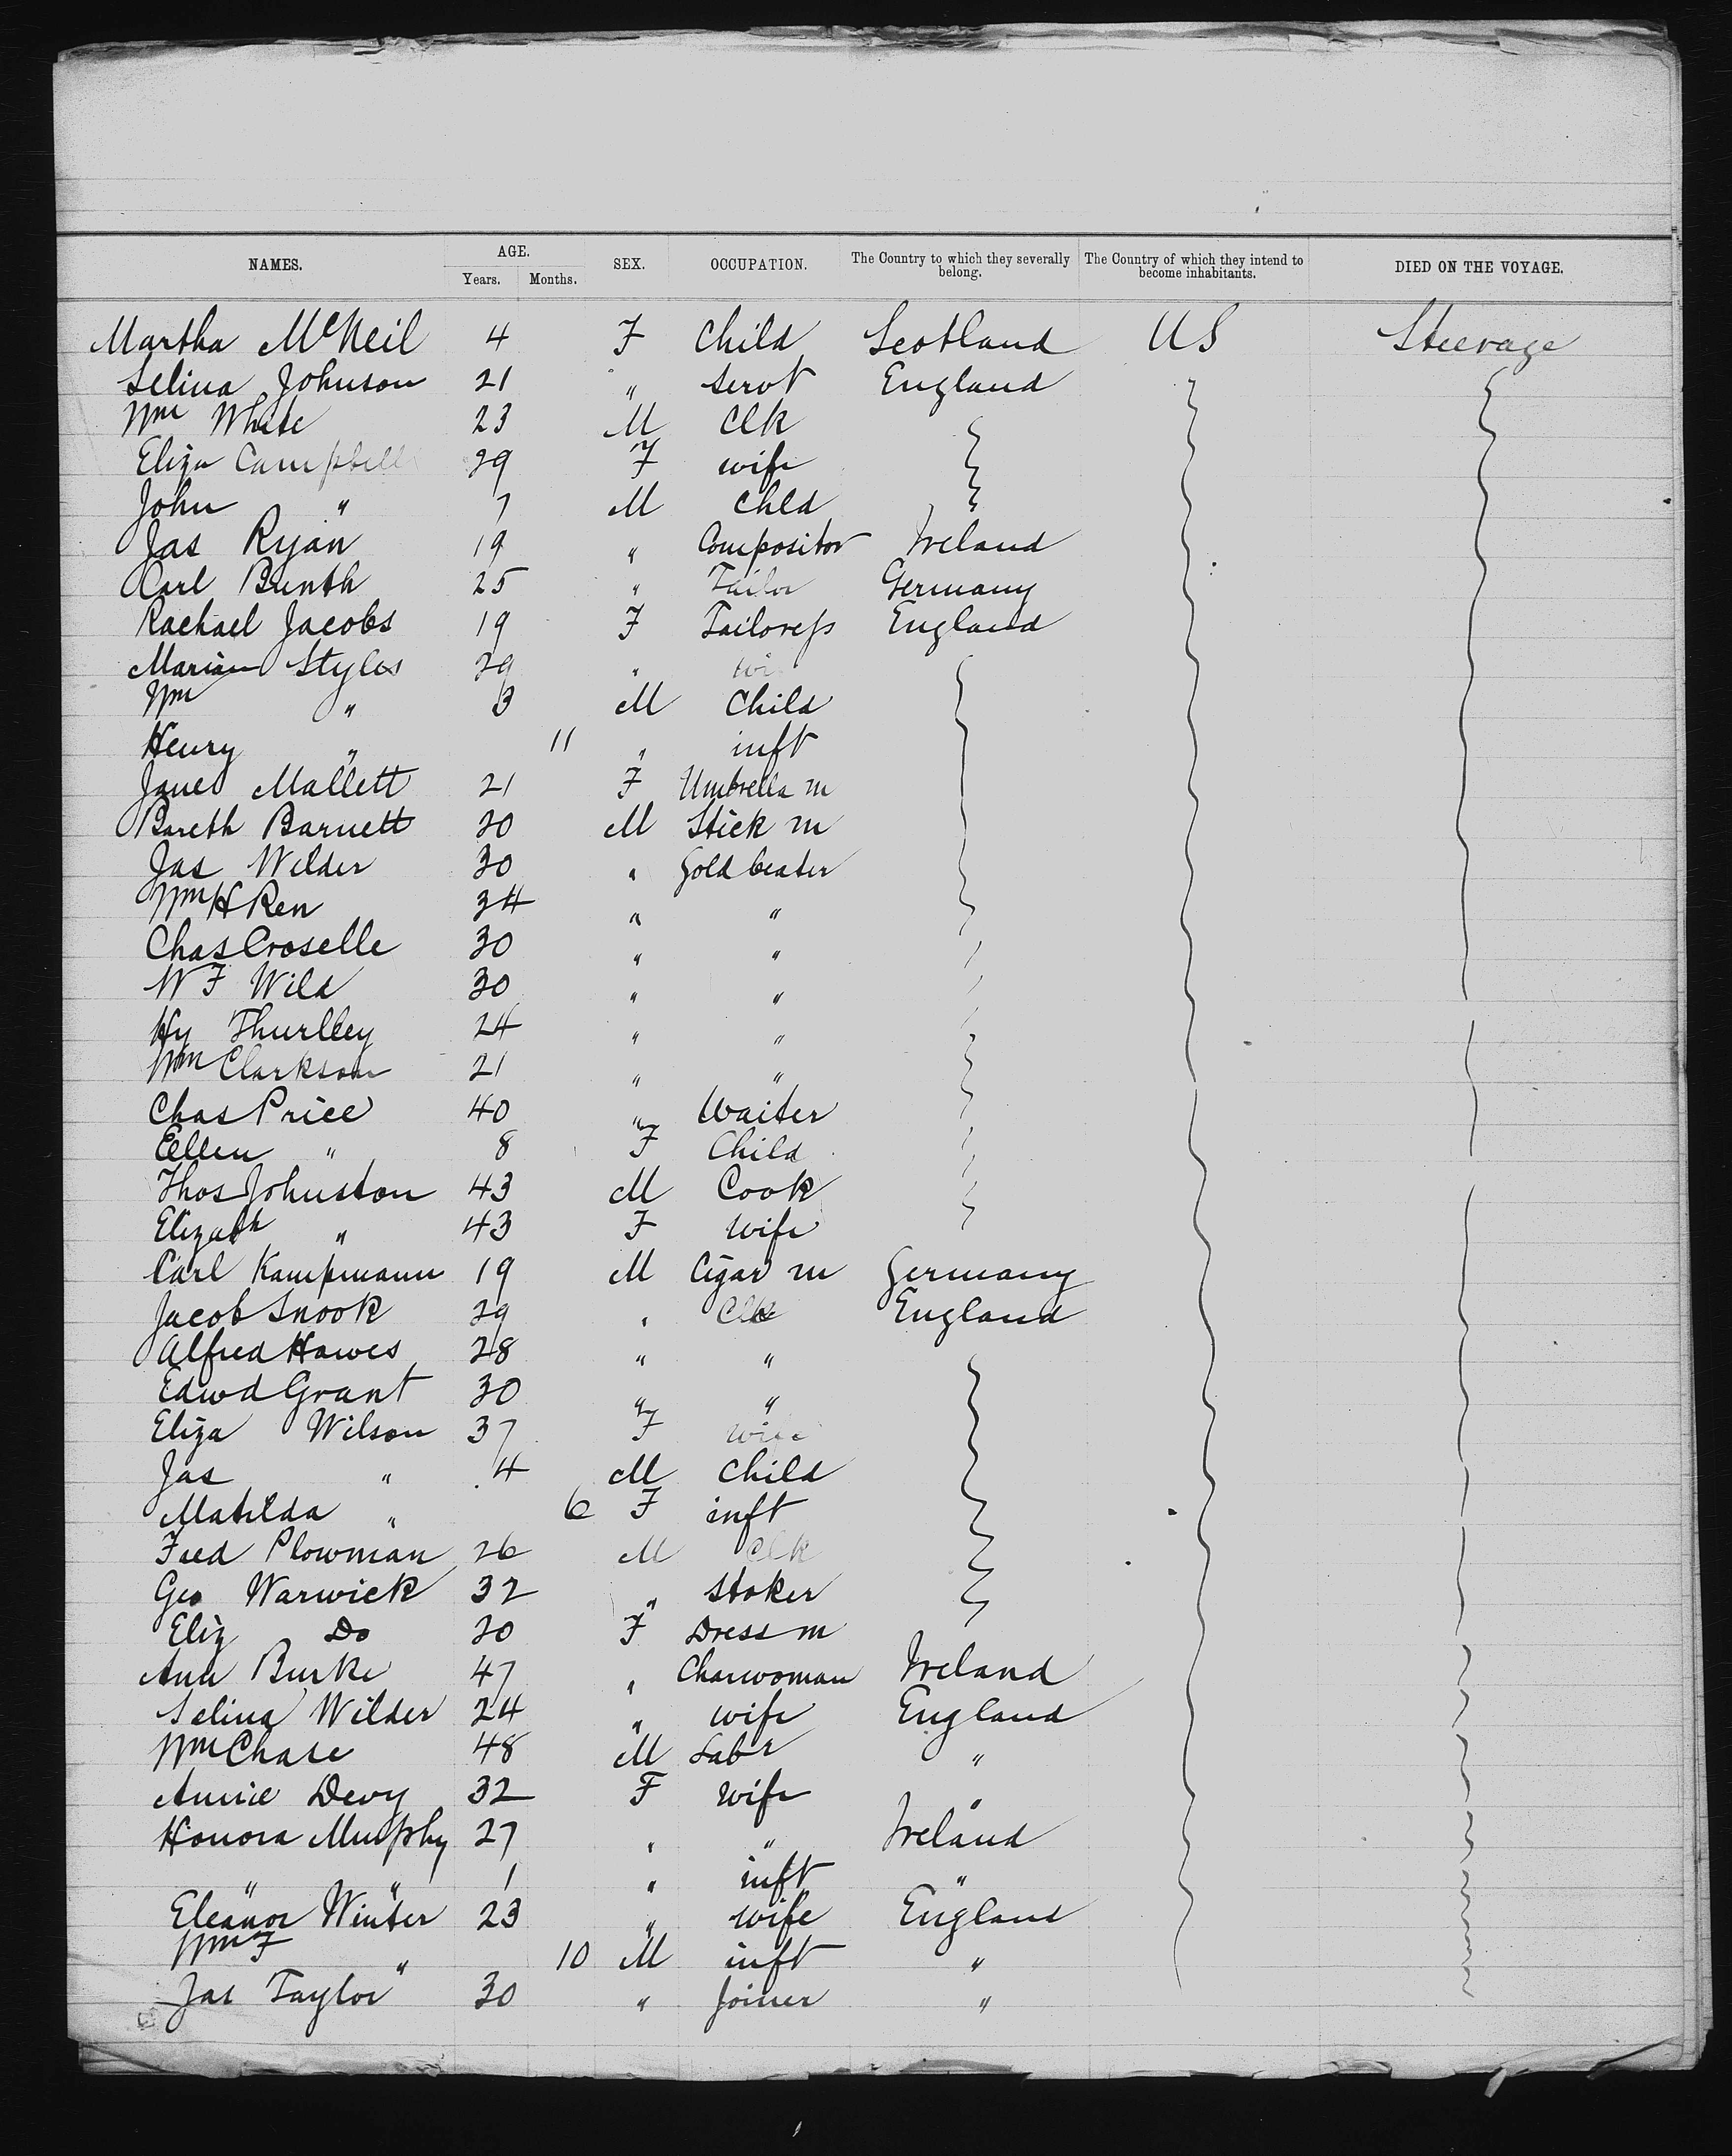 NAMES. AGE. Years. Months. SEX. OCCUPATION. The Country to which they severally belong. The Country of which they intend to become inhabitants. DIED ON THE VOYAGE.
Martha McNeil 4 F Child Scotland US Steerage
Selina Johnson 21 " Servt England
Wm White 23 M Clk
Eliza Campbell 29 F wife
John " 7 M Chld
Jas Ryan 19 " Compositor Ireland
Carl Bunth 25 " Tailor Germany
Rachael Jacobs 19 F Tailoress England
Marian Styles 29 "
Wm " 3 M Child
Henry " 11 " inft
Janet Mallett 21 F Umbrella m
Bareth Barnett 20 M Stick m
Jas Wilder 30 " Gold beater
Wm H Ren 34 " "
Chas Croselle 30 " "
W F Wild 30 " "
Hy Thurlley 24 " "
Wm Clarkson 21 " "
Chas Price 40 " Waiter
Ellen " 8 F Child
Thos Johnston 43 M Cook
Elizabth " 43 F Wife
Carl Kampmann 19 M Cigar m Germany
Jacob Snook 29 " Clk England
Alfred Hawes 28 " "
Edwd Grant 30 " "
Eliza Wilson 37 F Wife
Jas " 4 M Child
Matilda " 6 F inft
Fred Plowman 26 M Clk
Geo Warwick 32 " Stoker
Eliz Do 30 F Dress m
Ann Burke 47 " Charwoman Ireland
Selina Wilder 24 " wife England
Wm Chase 48 M Labr "
Annie Devy 32 F Wife "
Honora Murphy 27 " " Ireland
" " 1 " inft "
Eleanor Winter 23 " wife England
Wm F " 10 M inft "
Jas Taylor 30 " Joiner "